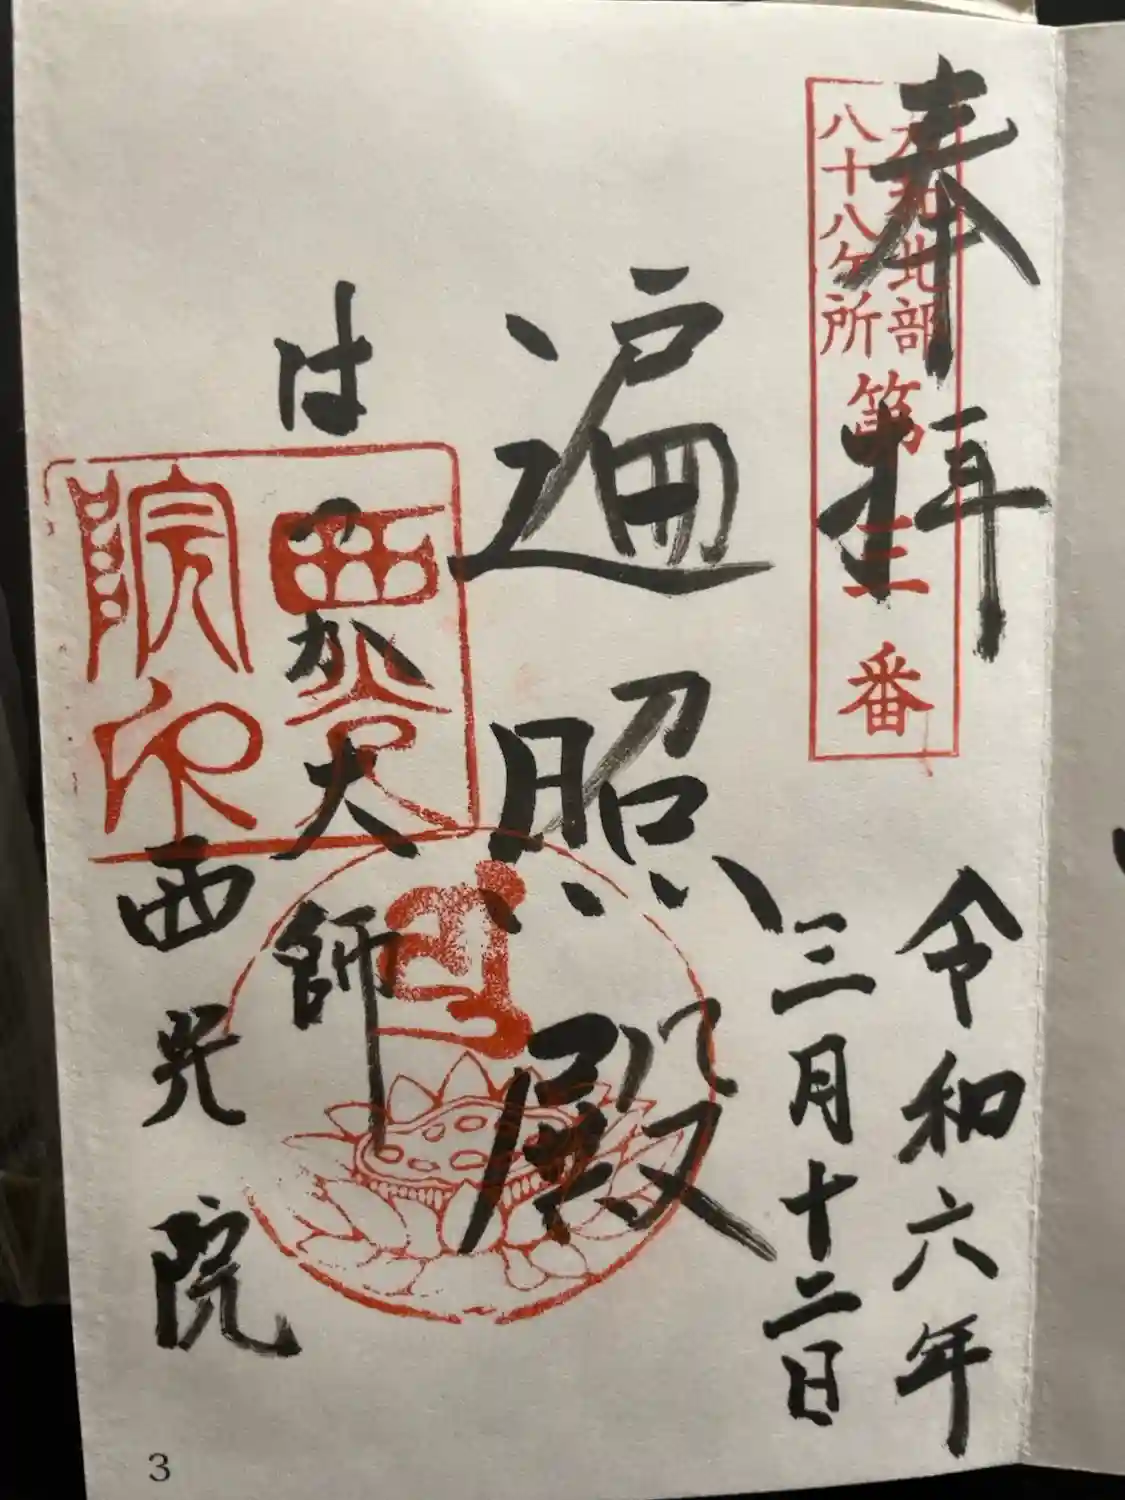 奉拝
大和北部
八十八ヶ所
第三番
令和六年
三月十二日
遍照殿
はだか大師
西光院
西光院印
3